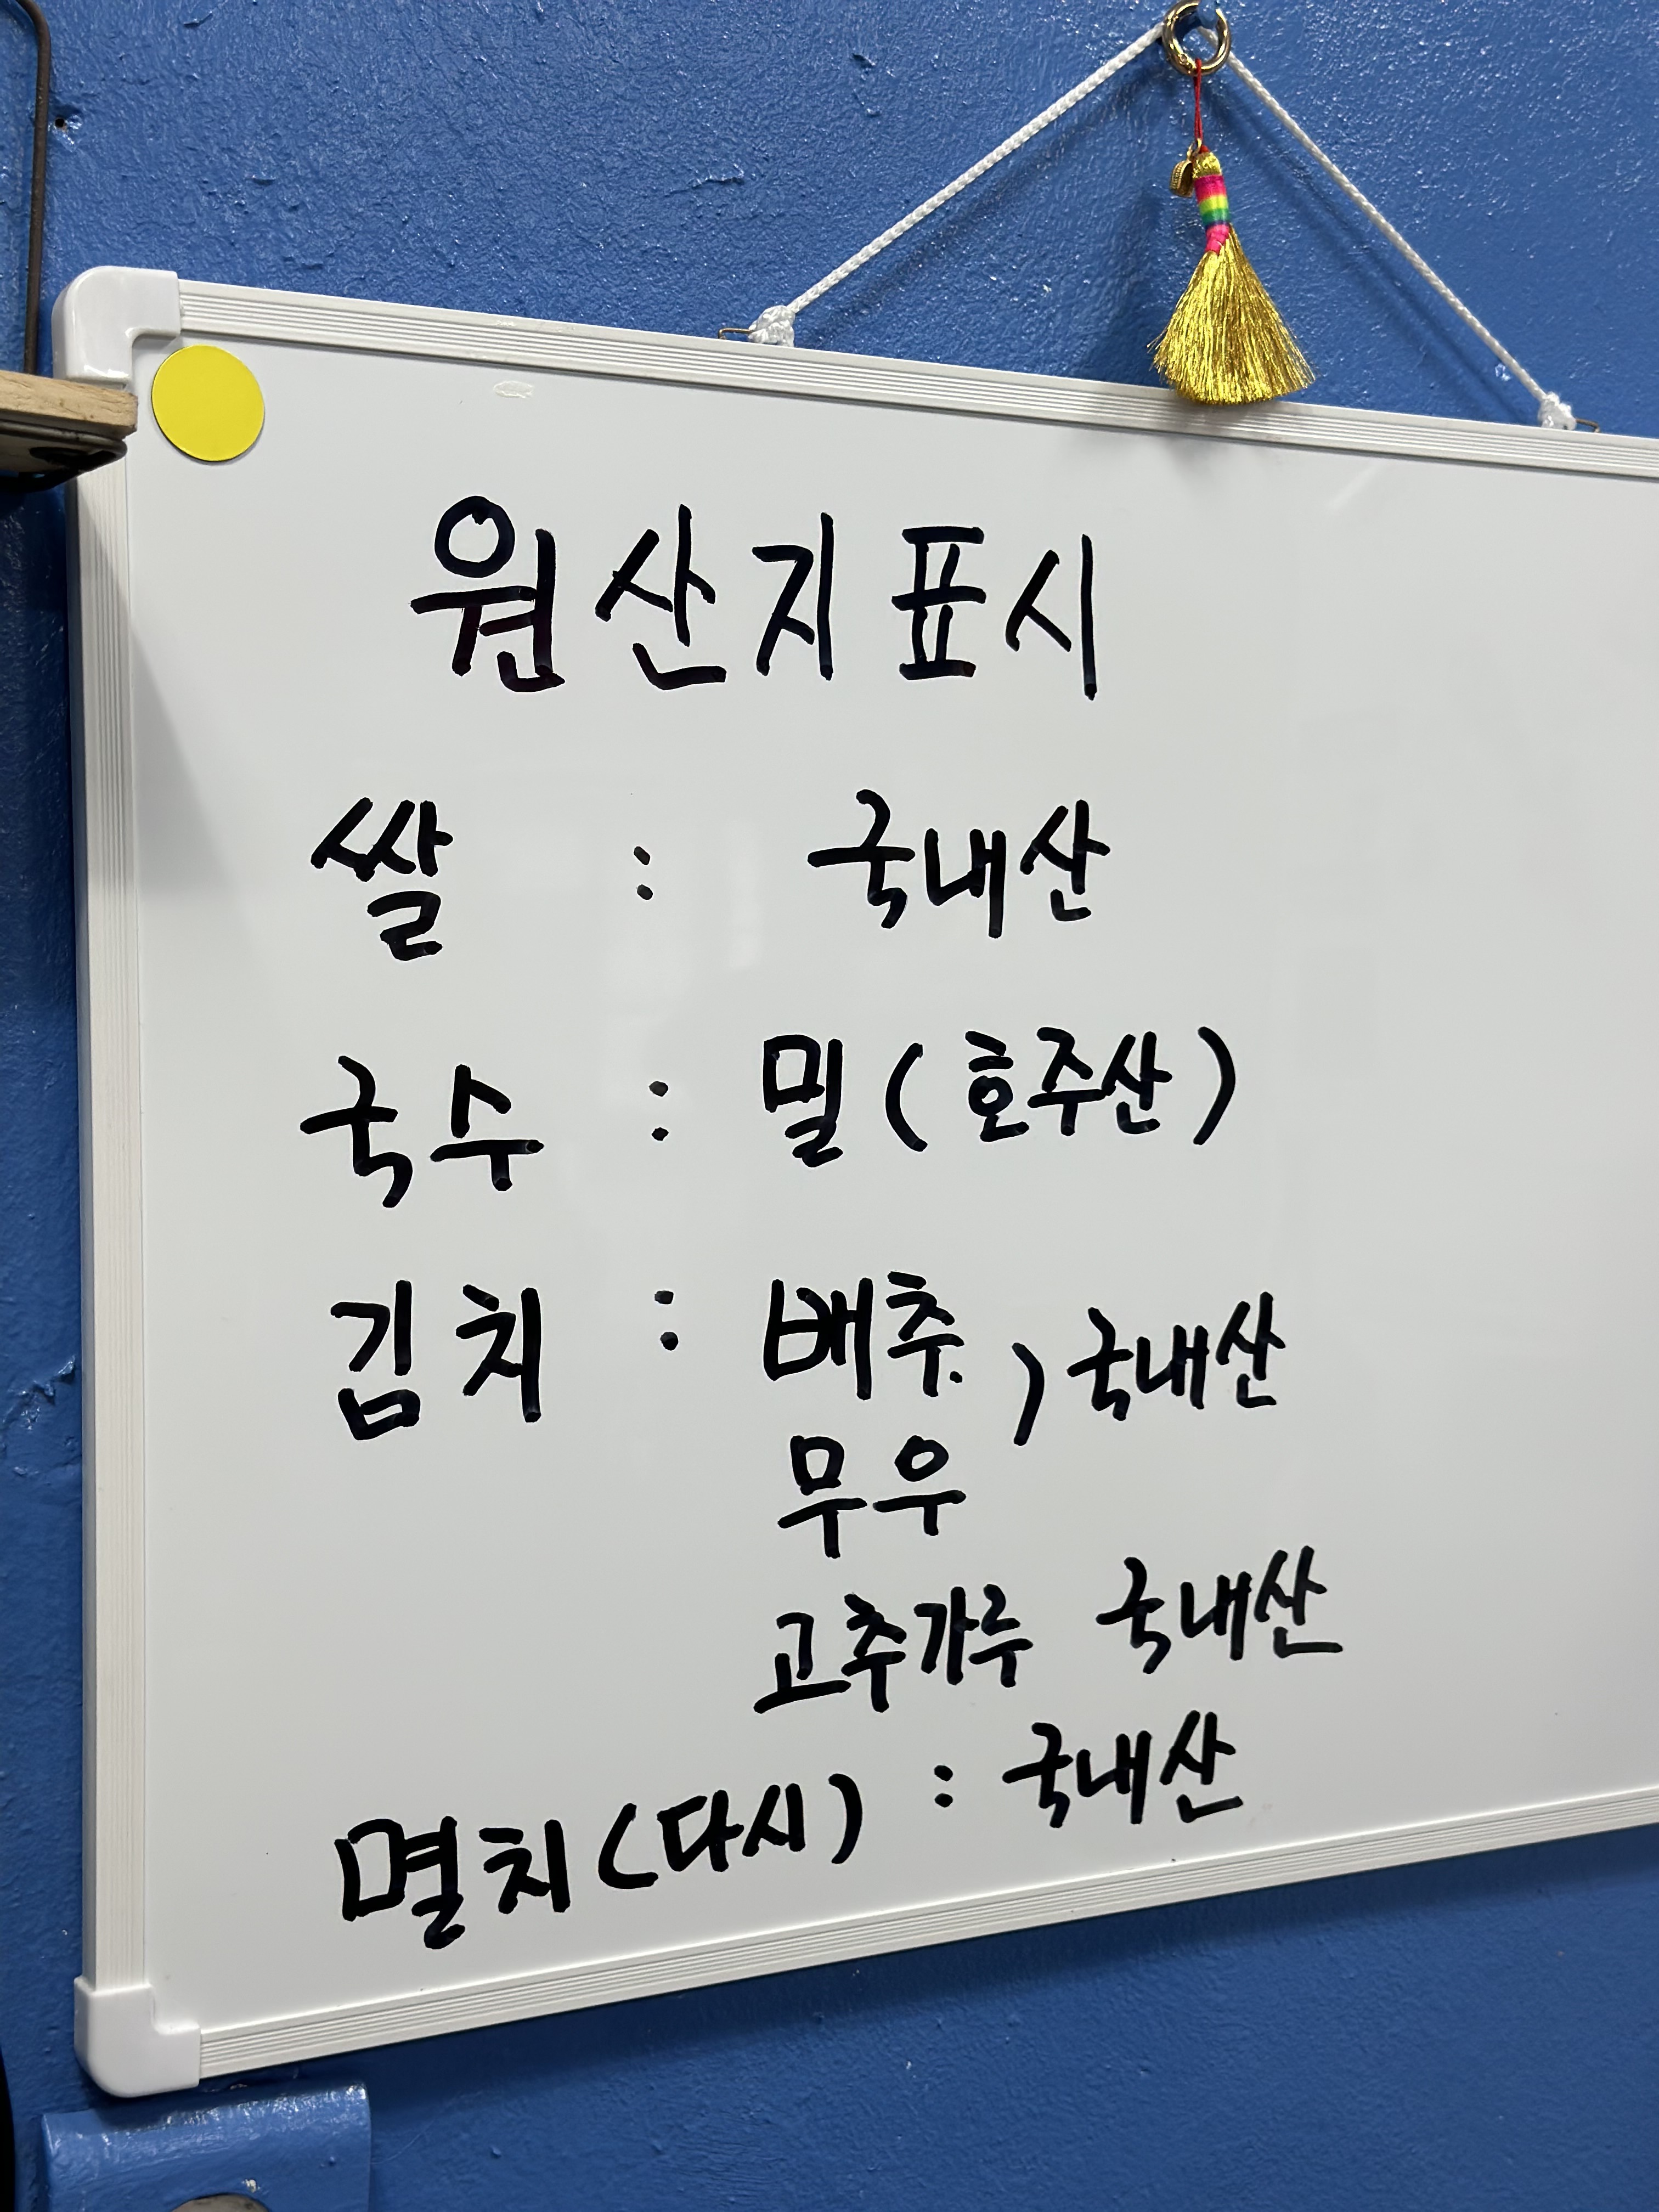 원산지표시
쌀 : 국내산
국수 : 밀(호주산)
김치 : 배추, ) 국내산
무우
고추가루 국내산
멸치(다시) : 국내산